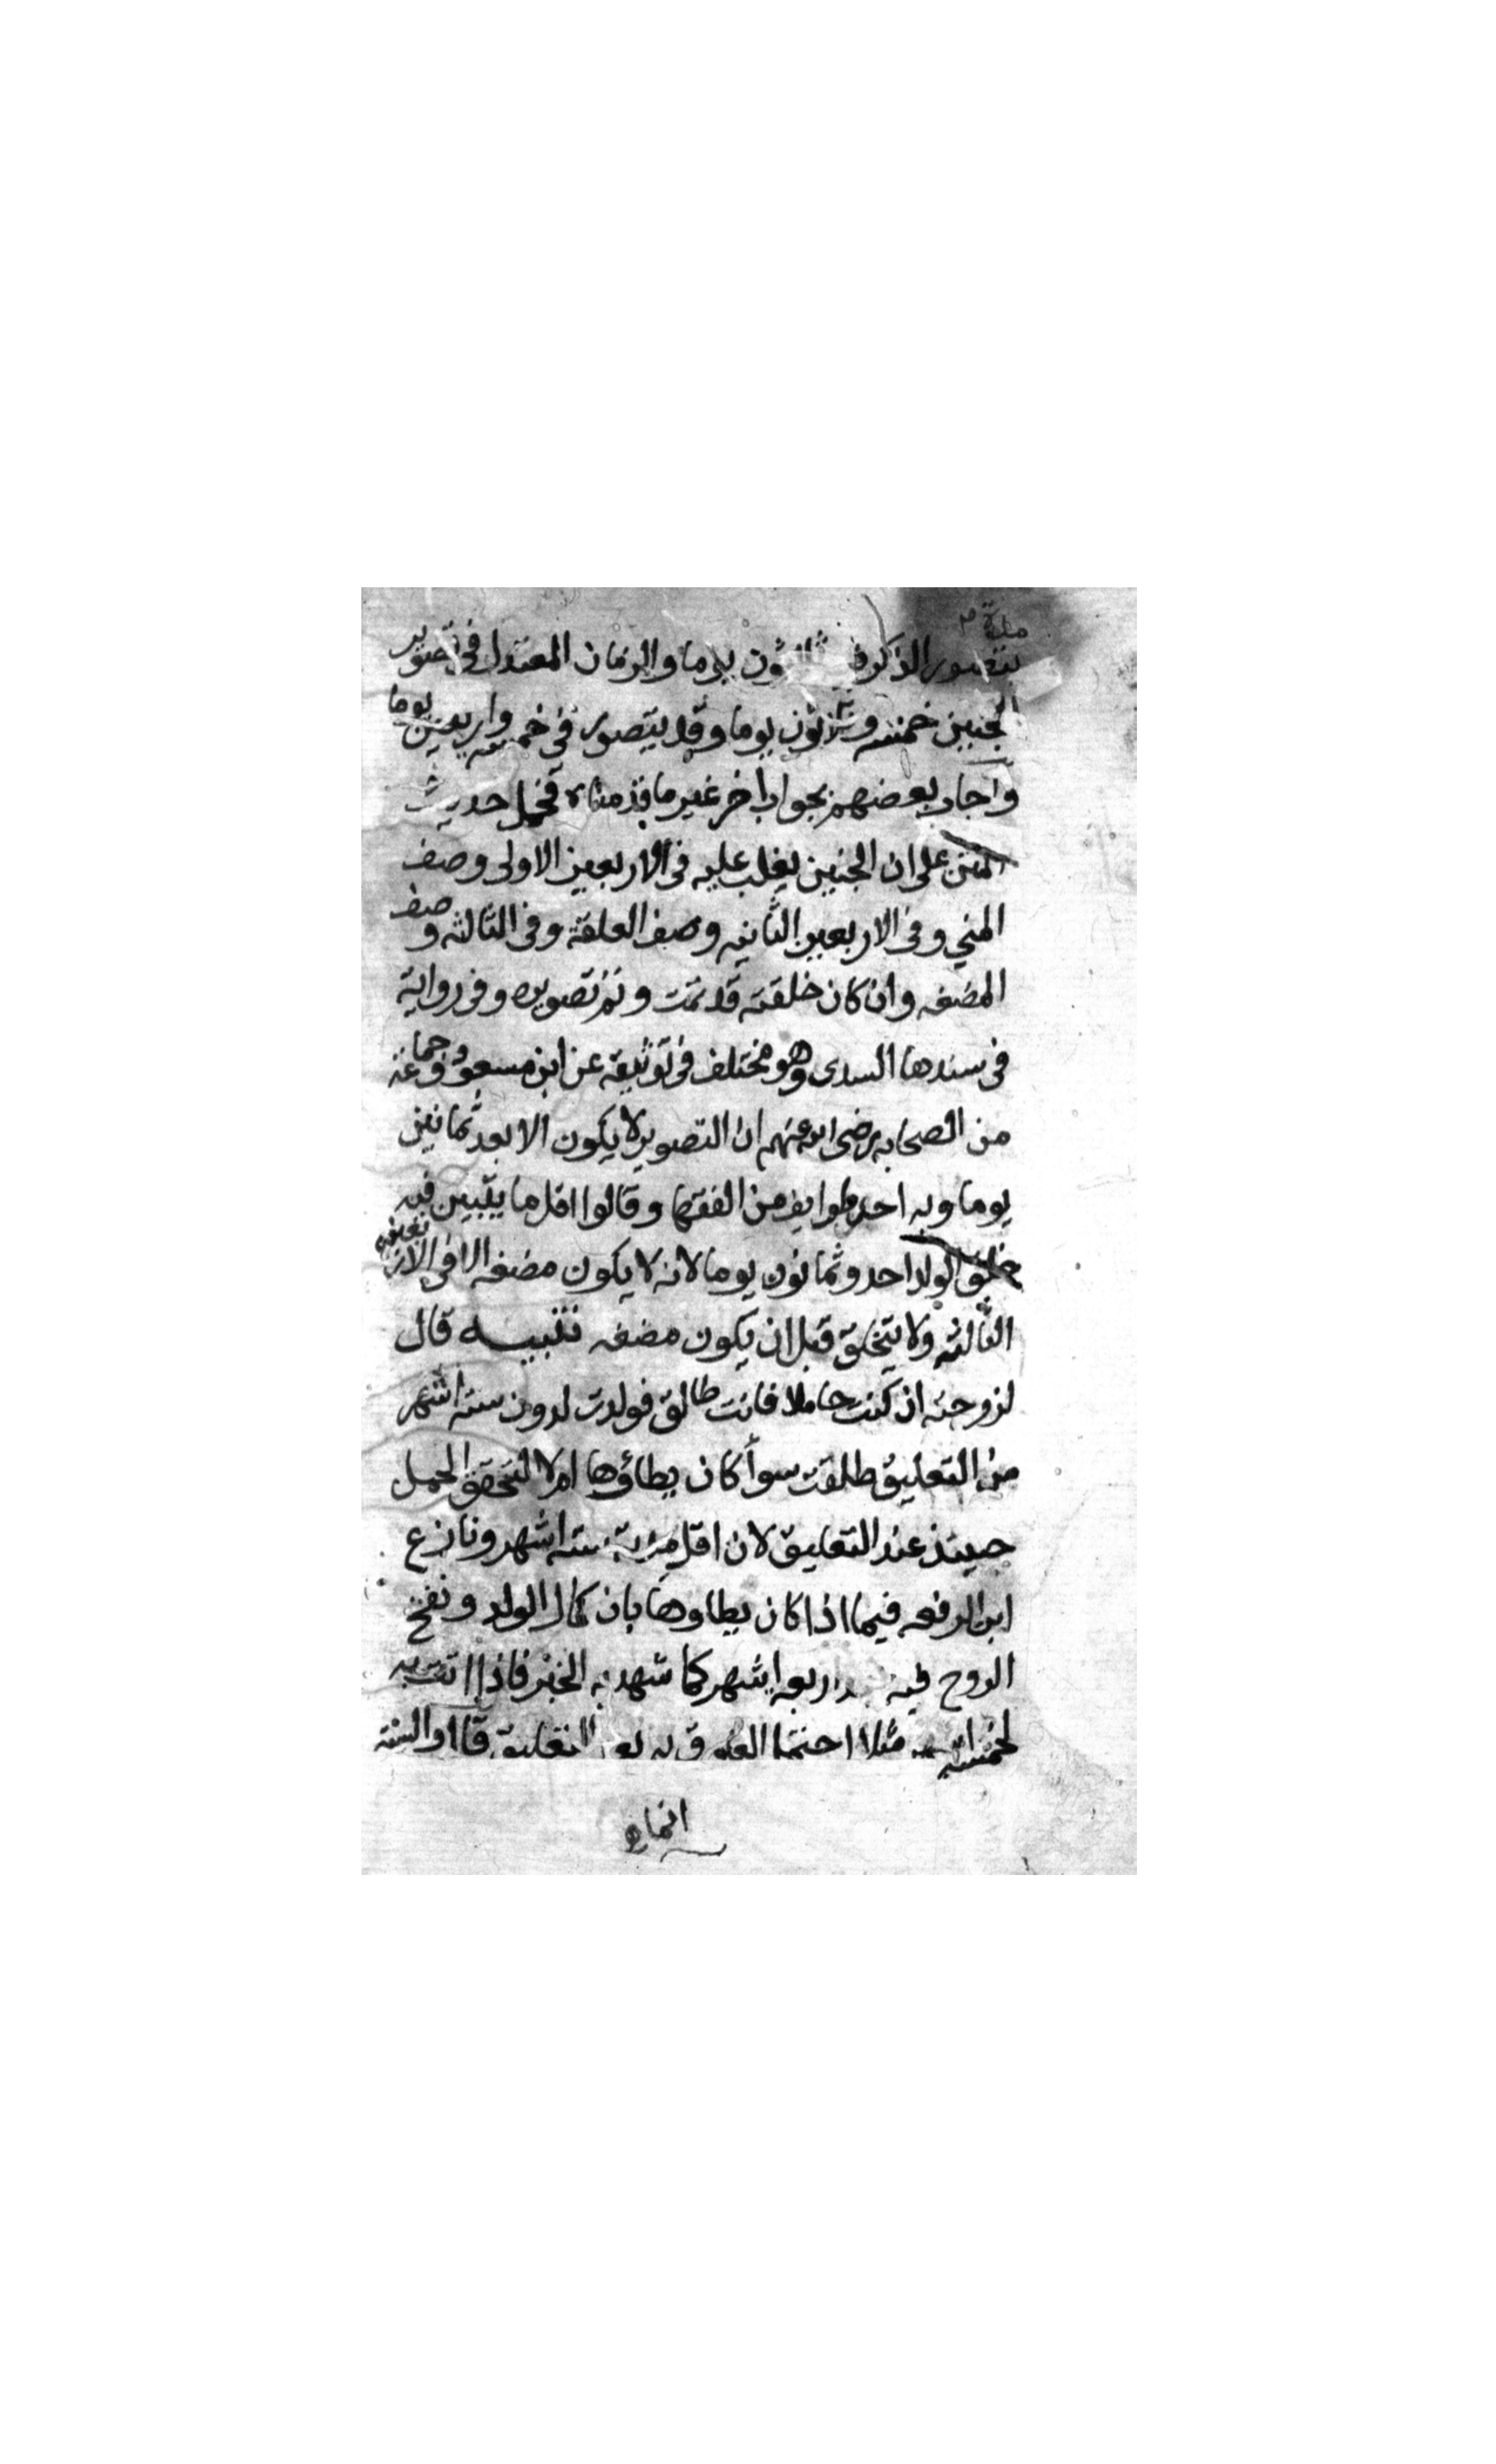 يتصور الذكر ثلاثون يوما والزمان المعتدل في تصوير
الجنين خمسة وثلاثون يوما وقد يتصور في خمسة واربعين يوما
واجاب بعضهم بجواب اخر غير ما قدمناه فحمل حديث
المتن على ان الجنين يغلب عليه في الاربعين الاولى وصف
المني وفي الاربعين الثانيه وصف العلقة وفي الثالثه وصف
المضغه وان كان خلقته قد تمت وتم تصويره وفي رواية
في سندها السدى وهو مختلف في توثيقه عن ابن مسعود وجماعة
من الصحابه رضى الله عنهم ان التصوير لا يكون الا بعد ثمانين
يوما وبه اخذ طوايف من الفقها وقالوا اقل ما يتبين فيه
خلق الولد احد وثمانون يوما لانه لا يكون مضغه الا في الاربعين
الثالثه ولا يتخلق قبل ان يكون مضغه تنبيه قال
لزوجته ان كنت حاملا فانت طالق فولدت لدون ستة اشهر
من التعليق طلقت سوأ كان يطاؤها ام لا لتحقق الحمل
حينئذ عند التعليق لان اقل مدته ستة اشهر ونازع
ابن الرفعه فيما اذا كان يطاوها بان كمال الولد ونفخ
الروح فيه اربعة اشهر كما شهد به الخبر فاذا اتت به
لخمسة اشهر مثلا احتمل العلوق به بعد التعليق قال والستة
انما هي